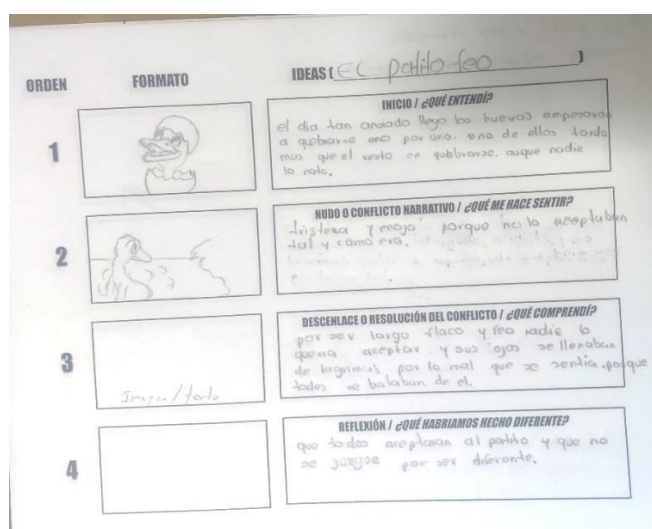 ORDEN
FORMATO
IDEAS ( EL patito feo )
1
INICIO / ¿QUÉ ENTENDÍ?
el dia tan anciado llego los huevos emperaron
a quebrarse uno por uno. uno de ellos tardo
mas que el resto en quebrarse. auque nadie
lo noto.
2
NUDO O CONFLICTO NARRATIVO / ¿QUÉ ME HACE SENTIR?
tristeza y enojo porque no lo aceptaban
tal y como era.
3
Imagen/texto
DESCENLACE O RESOLUCIÓN DEL CONFLICTO / ¿QUÉ COMPRENDÍ?
por ser largo flaco y feo nadie lo
queria aceptar y sus ojos se llenaban
de lagrimas por lo mal que se sentia. porque
todos se burlaban de el.
4
REFLEXIÓN / ¿QUÉ HABRIAMOS HECHO DIFERENTE?
que todos aceptaran al patito y que no
se juzgue por ser diferente.